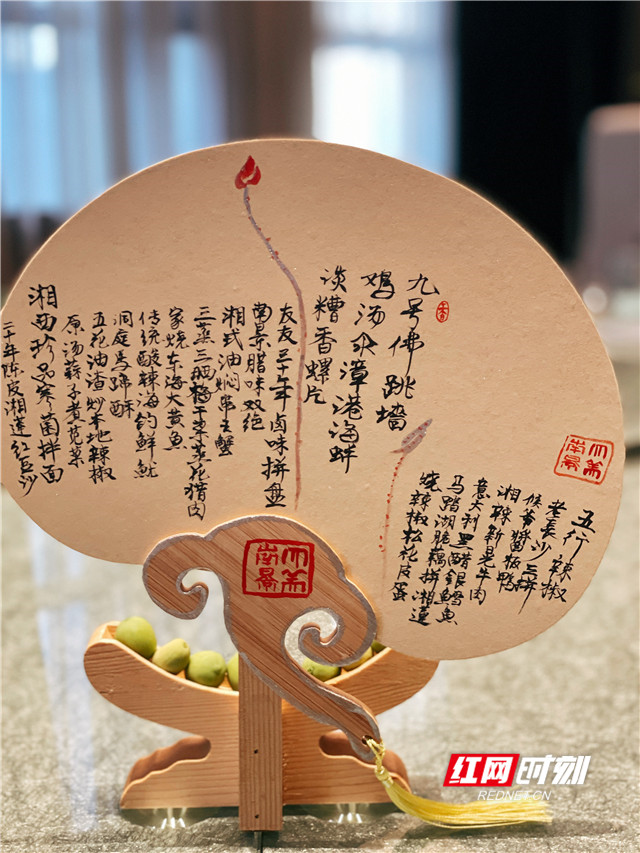 五行辣椒
老長沙三拼
侯爷醬板鸭
湘辣新晃牛肉
意大利黑醋银鳕鱼
马踏湖脆藕拼湘莲
烧辣椒松花皮蛋
九号佛跳墙
鸡汤汆漳港海蚌
淡糟香螺片
友友三十年卤味拼盘
南景腊味双绝
湘式油焖串王蟹
三蒸三晒梅干菜蒸花猎肉
家烧东海大黄鱼
传统酸辣海钓鲜鱿
洞庭馬蹄酥
五花油渣炒本地辣椒
原汤蒜子煮苋菜
湘西珍品寒菌拌面
二十年陈皮湘莲红豆沙
南景
南景
红网时刻
REDNET.CN